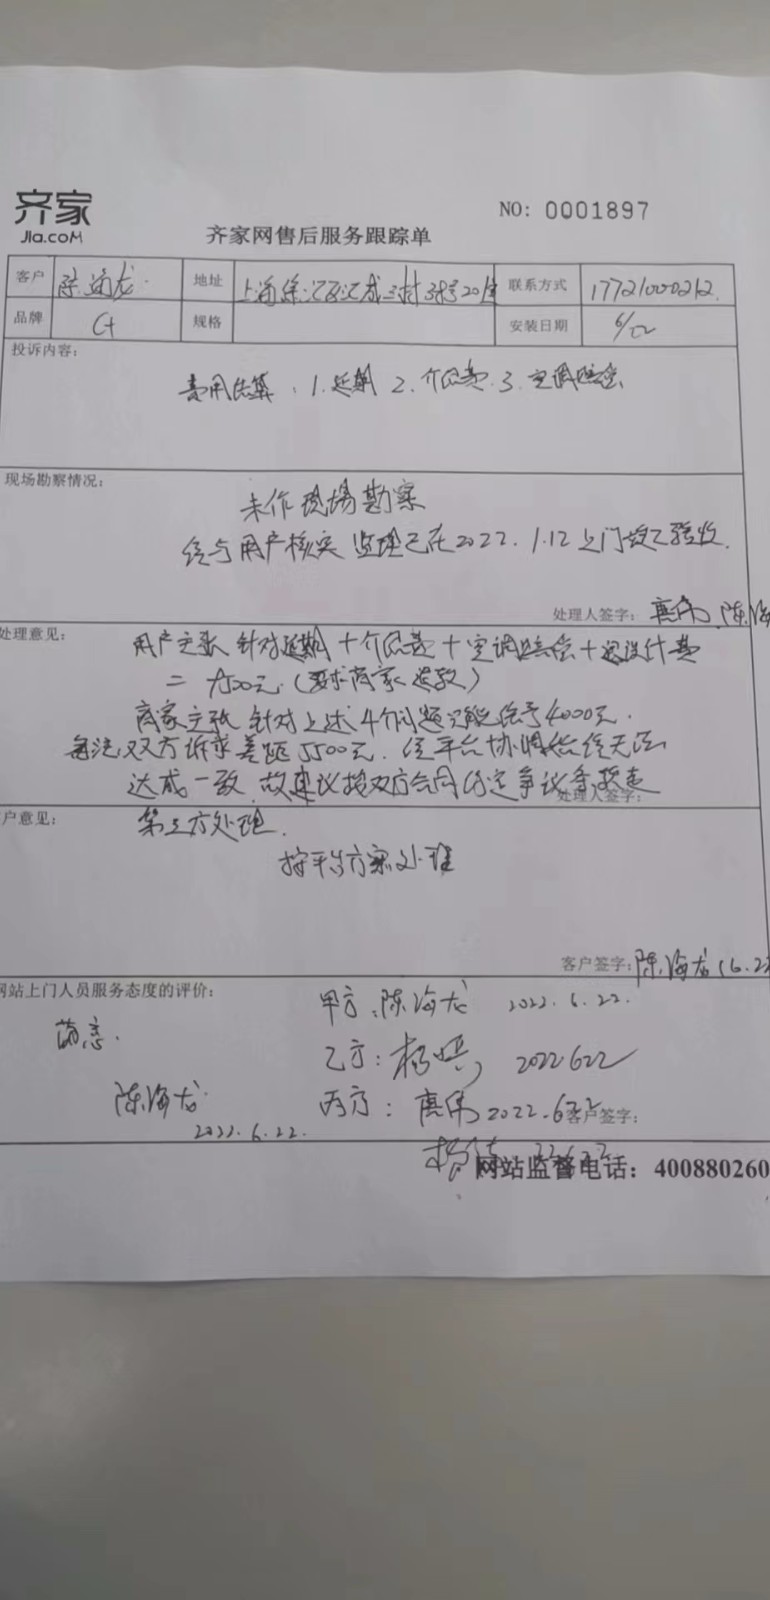 齐家
Jia.com
NO: 0001897
齐家网售后服务跟踪单
客户 陈海龙 地址 上海徐汇区汇成三村 号20 联系方式 17721000212
品牌 C+ 规格 安装日期 6/22
投诉内容:
费用结算、1.延期 2.介面费 3.空调赔偿
现场勘察情况:
未作现场勘察
经与用户核实 监理已在2022.1.12上门 验收.
处理人签字: 唐伟 陈海
处理意见: 用户主张 针对延期+介面费+空调赔偿+退设计费
= 9500元.(要求商家 )
商家主张 针对上述4个问题只能给予4000元.
双方诉求差距5500元. 经平台协调始终无法
达成一致 故建议按双方合同约定争议条款走
处理人签字:
户意见: 第三方处理.
按平台方案处理
客户签字: 陈海龙 6.22
网站上门人员服务态度的评价:
甲方:陈海龙 2022.6.22.
满意.
乙方: 杨 2022 6 22
陈海龙
丙方: 唐伟 2022.6.22
客户签字:
2022.6.22.
杨
网站监督电话: 400880260